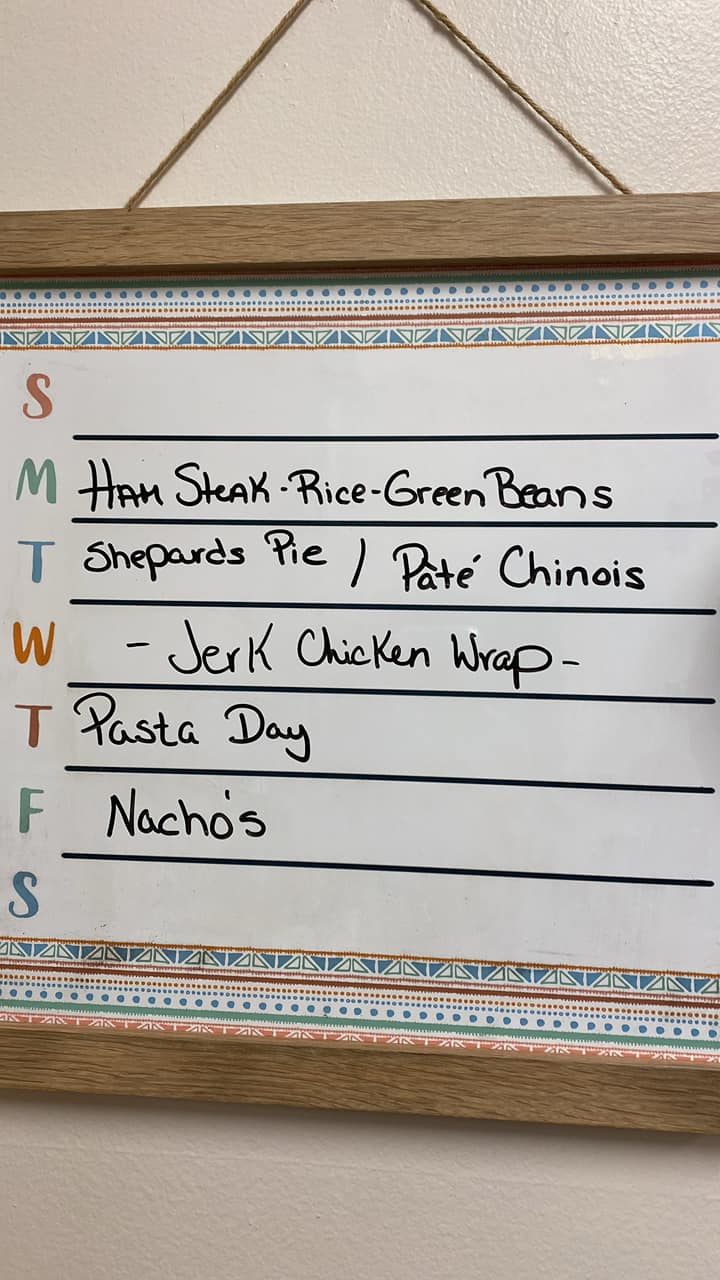 S
M Ham Steak - Rice - Green Beans
T Shepards Pie / Pâté Chinois
W - Jerk Chicken Wrap -
T Pasta Day
F Nacho's
S